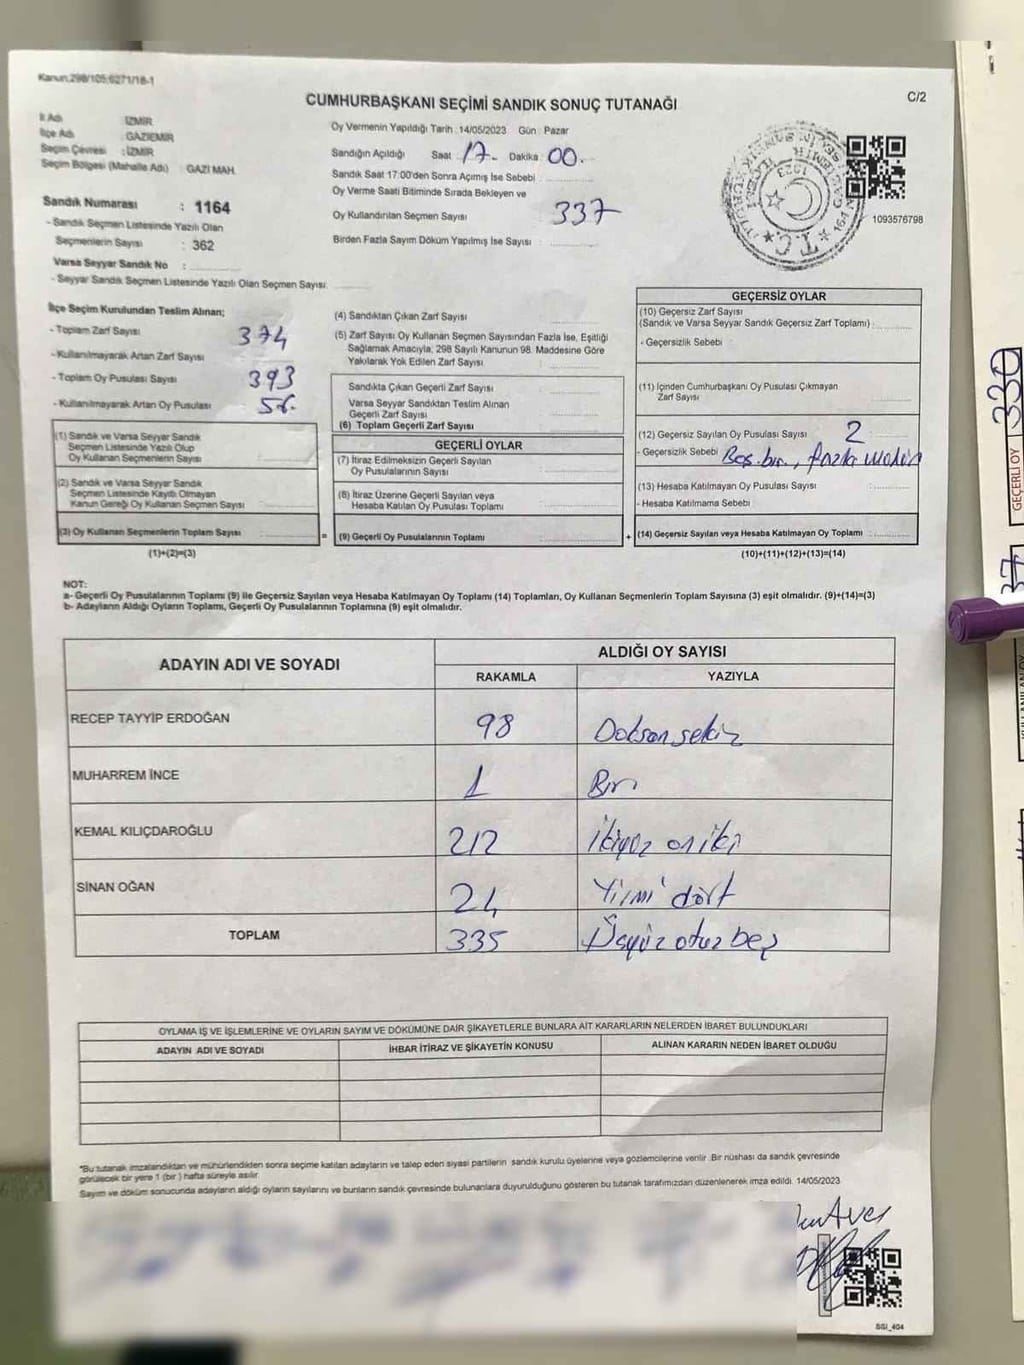 Kanun:298/105;6271/18-1
C/2
CUMHURBAŞKANI SEÇİMİ SANDIK SONUÇ TUTANAĞI
İl Adı : İZMİR
İlçe Adı : GAZİEMİR
Seçim Çevresi : İZMİR
Seçim Bölgesi (Mahalle Adı) : GAZİ MAH.
Sandık Numarası : 1164
- Sandık Seçmen Listesinde Yazılı Olan
Seçmenlerin Sayısı : 362
Varsa Seyyar Sandık No :
- Seyyar Sandık Seçmen Listesinde Yazılı Olan Seçmen Sayısı:
Oy Vermenin Yapıldığı Tarih : 14/05/2023 Gün : Pazar
Sandığın Açıldığı Saat : 17- Dakika : 00.
Sandık Saat 17:00'den Sonra Açımış İse Sebebi :
Oy Verme Saati Bitiminde Sırada Bekleyen ve
Oy Kullandırılan Seçmen Sayısı 337
Birden Fazla Sayım Döküm Yapılmış İse Sayısı :
T.C.
1093576798
İlçe Seçim Kurulundan Teslim Alınan;
- Toplam Zarf Sayısı 374
- Kullanılmayarak Artan Zarf Sayısı
- Toplam Oy Pusulası Sayısı 393
- Kullanılmayarak Artan Oy Pusulası 56.
(1) Sandık ve Varsa Seyyar Sandık
Seçmen Listesinde Yazılı Olup
Oy Kullanan Seçmenlerin Sayısı
(2) Sandık ve Varsa Seyyar Sandık
Seçmen Listesinde Kayıtlı Olmayan
Kanun Gereği Oy Kullanan Seçmen Sayısı
(3) Oy Kullanan Seçmenlerin Toplam Sayısı
(1)+(2)=(3)
(4) Sandıktan Çıkan Zarf Sayısı
(5) Zarf Sayısı Oy Kullanan Seçmen Sayısından Fazla İse, Eşitliği
Sağlamak Amacıyla; 298 Sayılı Kanunun 98. Maddesine Göre
Yakılarak Yok Edilen Zarf Sayısı
Sandıkta Çıkan Geçerli Zarf Sayısı
Varsa Seyyar Sandıktan Teslim Alınan
Geçerli Zarf Sayısı
(6) Toplam Geçerli Zarf Sayısı
GEÇERLİ OYLAR
(7) İtiraz Edilmeksizin Geçerli Sayılan
Oy Pusulalarının Sayısı
(8) İtiraz Üzerine Geçerli Sayılan veya
Hesaba Katılan Oy Pusulası Toplamı
= (9) Geçerli Oy Pusulalarının Toplamı
GEÇERSİZ OYLAR
(10) Geçersiz Zarf Sayısı
(Sandık ve Varsa Seyyar Sandık Geçersiz Zarf Toplamı) :
- Geçersizlik Sebebi :
(11) İçinden Cumhurbaşkanı Oy Pusulası Çıkmayan
Zarf Sayısı
(12) Geçersiz Sayılan Oy Pusulası Sayısı 2
- Geçersizlik Sebebi Boş bir, fazla mühür
(13) Hesaba Katılmayan Oy Pusulası Sayısı
- Hesaba Katılmama Sebebi
+ (14) Geçersiz Sayılan veya Hesaba Katılmayan Oy Toplamı
(10)+(11)+(12)+(13)=(14)
NOT:
a- Geçerli Oy Pusulalarının Toplamı (9) ile Geçersiz Sayılan veya Hesaba Katılmayan Oy Toplamı (14) Toplamları, Oy Kullanan Seçmenlerin Toplam Sayısına (3) eşit olmalıdır. (9)+(14)=(3)
b- Adayların Aldığı Oyların Toplamı, Geçerli Oy Pusulalarının Toplamına (9) eşit olmalıdır.
ADAYIN ADI VE SOYADI
ALDIĞI OY SAYISI
RAKAMLA YAZIYLA
RECEP TAYYİP ERDOĞAN 98 Doksan sekiz
MUHARREM İNCE 1 Bir
KEMAL KILIÇDAROĞLU 212 İkiyüz oniki
SİNAN OĞAN 24 Yirmi dört
TOPLAM 335 Üçyüz otuz beş
OYLAMA İŞ VE İŞLEMLERİNE VE OYLARIN SAYIM VE DÖKÜMÜNE DAİR ŞİKAYETLERLE BUNLARA AİT KARARLARIN NELERDEN İBARET BULUNDUKLARI
ADAYIN ADI VE SOYADI İHBAR İTİRAZ VE ŞİKAYETİN KONUSU ALINAN KARARIN NEDEN İBARET OLDUĞU
*Bu tutanak imzalandıktan ve mühürlendikten sonra seçime katılan adayların ve talep eden siyasi partilerin sandık kurulu üyelerine veya gözlemcilerine verilir. Bir nüshası da sandık çevresinde
görülecek bir yere 1 (bir) hafta süreyle asılır.
Sayım ve döküm sonucunda adayların aldığı oyların sayılarını ve bunların sandık çevresinde bulunanlara duyurulduğunu gösteren bu tutanak tarafımızdan düzenlenerek imza edildi. 14/05/2023
SSI_404
GEÇERLİ OY 330
37